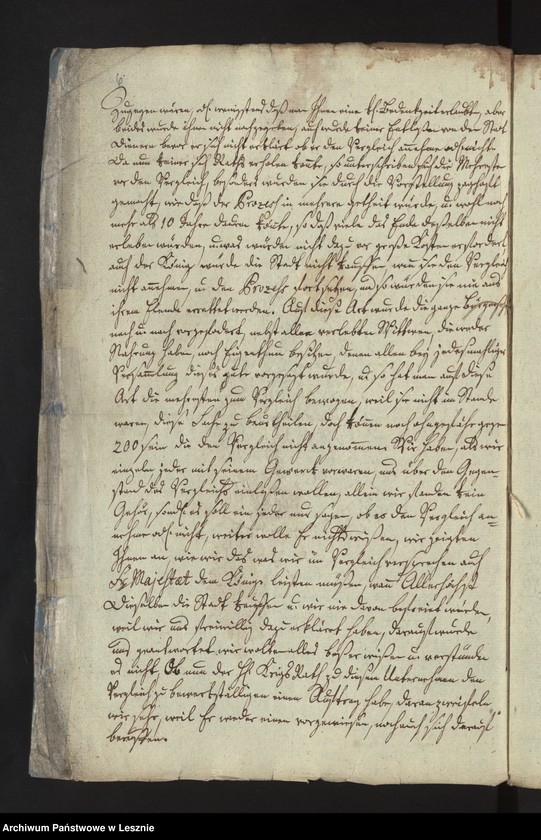 6.
zugegen wären, od. wenigstens daß man Ihnen eine kl. Bedenkzeit erlaubte, aber
beides wurde ihnen nicht nachgegeben, auch wurde keiner entlaßen von den Stadt
Dienern bevor er sich nicht erklärt ob er den Vergleich annehme od. nicht
Da nun keiner sich Raths erholen konte, so unterschrieben auch die Mehresten
den Vergleich, besonders wurden sie durch die Vorstellung zaghaft
gemacht, wie daß der Prozeß in mehrere getheilt würde, u. wohl noch
mehr als 10 Jahre dauern könte, so daß viele das Ende desselben nicht
erleben würden, u. was würden nicht dazu vor große Kosten erfordert
auch der König würde die Stadt nicht kauffen, wenn sie den Vergleich
nicht annehmen, u. den Prozess fortsetzen, und so würden sie nie aus
ihrem Elende errettet werden. Auf diese Art wurde die ganze Bürgerschaft
nach u. nach vorgefodert, nebst allen verlebten Wittwen, die weder
Nahrung haben, noch Eigenthum besitzen, denen allen bey jedesmahliger
Versammlung dieses vorgesagt wurde, u. so hat man auf diese
Art die mehresten zum Vergleich bewogen, weil sie nicht im Stande
waren, diese Sache zu beurtheilen, doch können noch ohngefähr gegen
200 sein die den Vergleich nicht angenommen. Wir haben, als wir
einzeln jeder mit seinem Gewerck vorwaren, uns über den Gegen-
stand des Vergleichs einlaßen wollen, allein wir fanden kein
Gehör, sondern es soll ein jeder nur sagen, ob er den Vergleich an-
nehme od. nicht, weiter wolle Er nichts wißen, wir zeigten
Ihnen an, wie wir das was wir im Vergleich versprechen auch
Sr. Majestaet dem Könige leisten müsten, wenn Allerhöchst
Dieselben die Stadt kauffen u. wir nie davon befreiet würden,
weil wir uns freiwillig dazu erklärt haben, darauf wurde
uns geantwortet, wir wolten alles beßer wißen u. verständen
es nicht. Ob nun der H. Krigs Rath zu diesem Unternehmen den
Vergleich zu bewerckstelligen einen Auftrag habe, daran zweifeln
wir sehr, weil Er weder einen vorgewiesen, noch auch sich darauf
beruffen.
Archiwum Państwowe w Lesznie